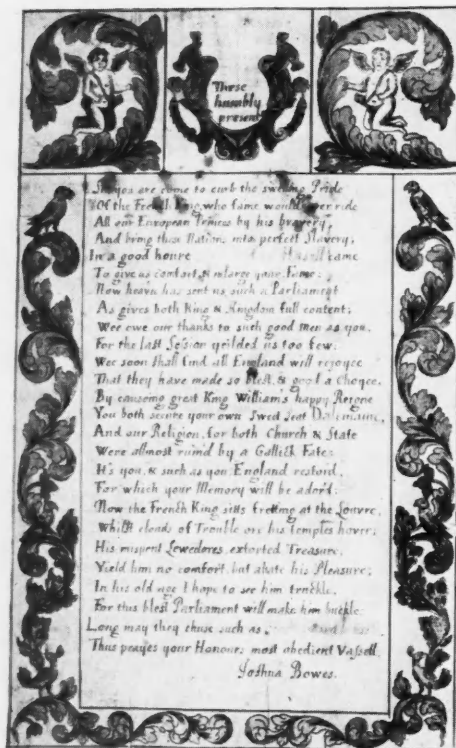 These
humbly
present
you are come to curb the swelling Pride
Of the French King, who fame would over ride
All our European Princes by his bravery,
And bring those Nations into perfect Slavery;
In a good houre came
To give us comfort, & inlarge your Fame:
Now heaven has sent us such a Parliament
As gives both King & Kingdom full content;
Wee owe our thanks to such good men as you,
For the last Session yeilded us too few:
Wee soon shall find all England will rejoyce
That they have made so blest, & good a Choyce,
By causeing great King William's happy Reigne
You both secure your own Sweet Seat
And our Religion, for both Church & State
Were allmost ruind by a Gallick Fate:
It's you, & such as you England restord,
For which your Memory will be ador'd:
Now the French King sitts fretting at the Louvre,
Whilst clouds of Trouble ore his Temples hover;
His mispent Lewedores, extorted Treasure,
Yield him no comfort, but abate his Pleasure;
In his old age I hope to see him truckle,
For this blest Parliament will make him buckle
Long may they chuse such as
Thus prayes your Honours most obedient Vassell
Joshua Bowes.